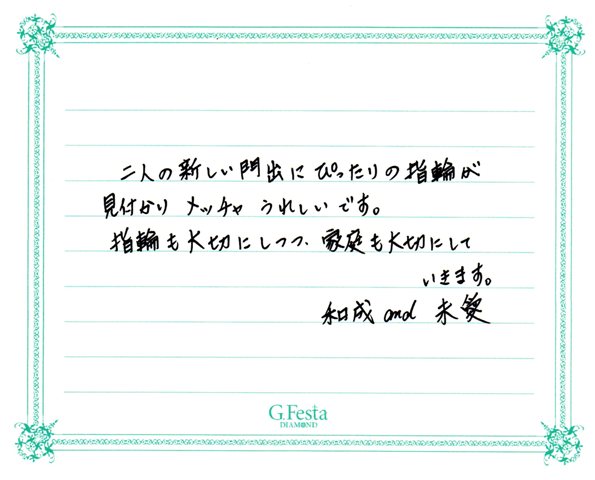 二人の新しい門出にぴったりの指輪が
見付かり メッチャ うれしいです。
指輪も大切にしつつ、家庭も大切にして
いきます。
和成 and 未
G.Festa
DIAMOND